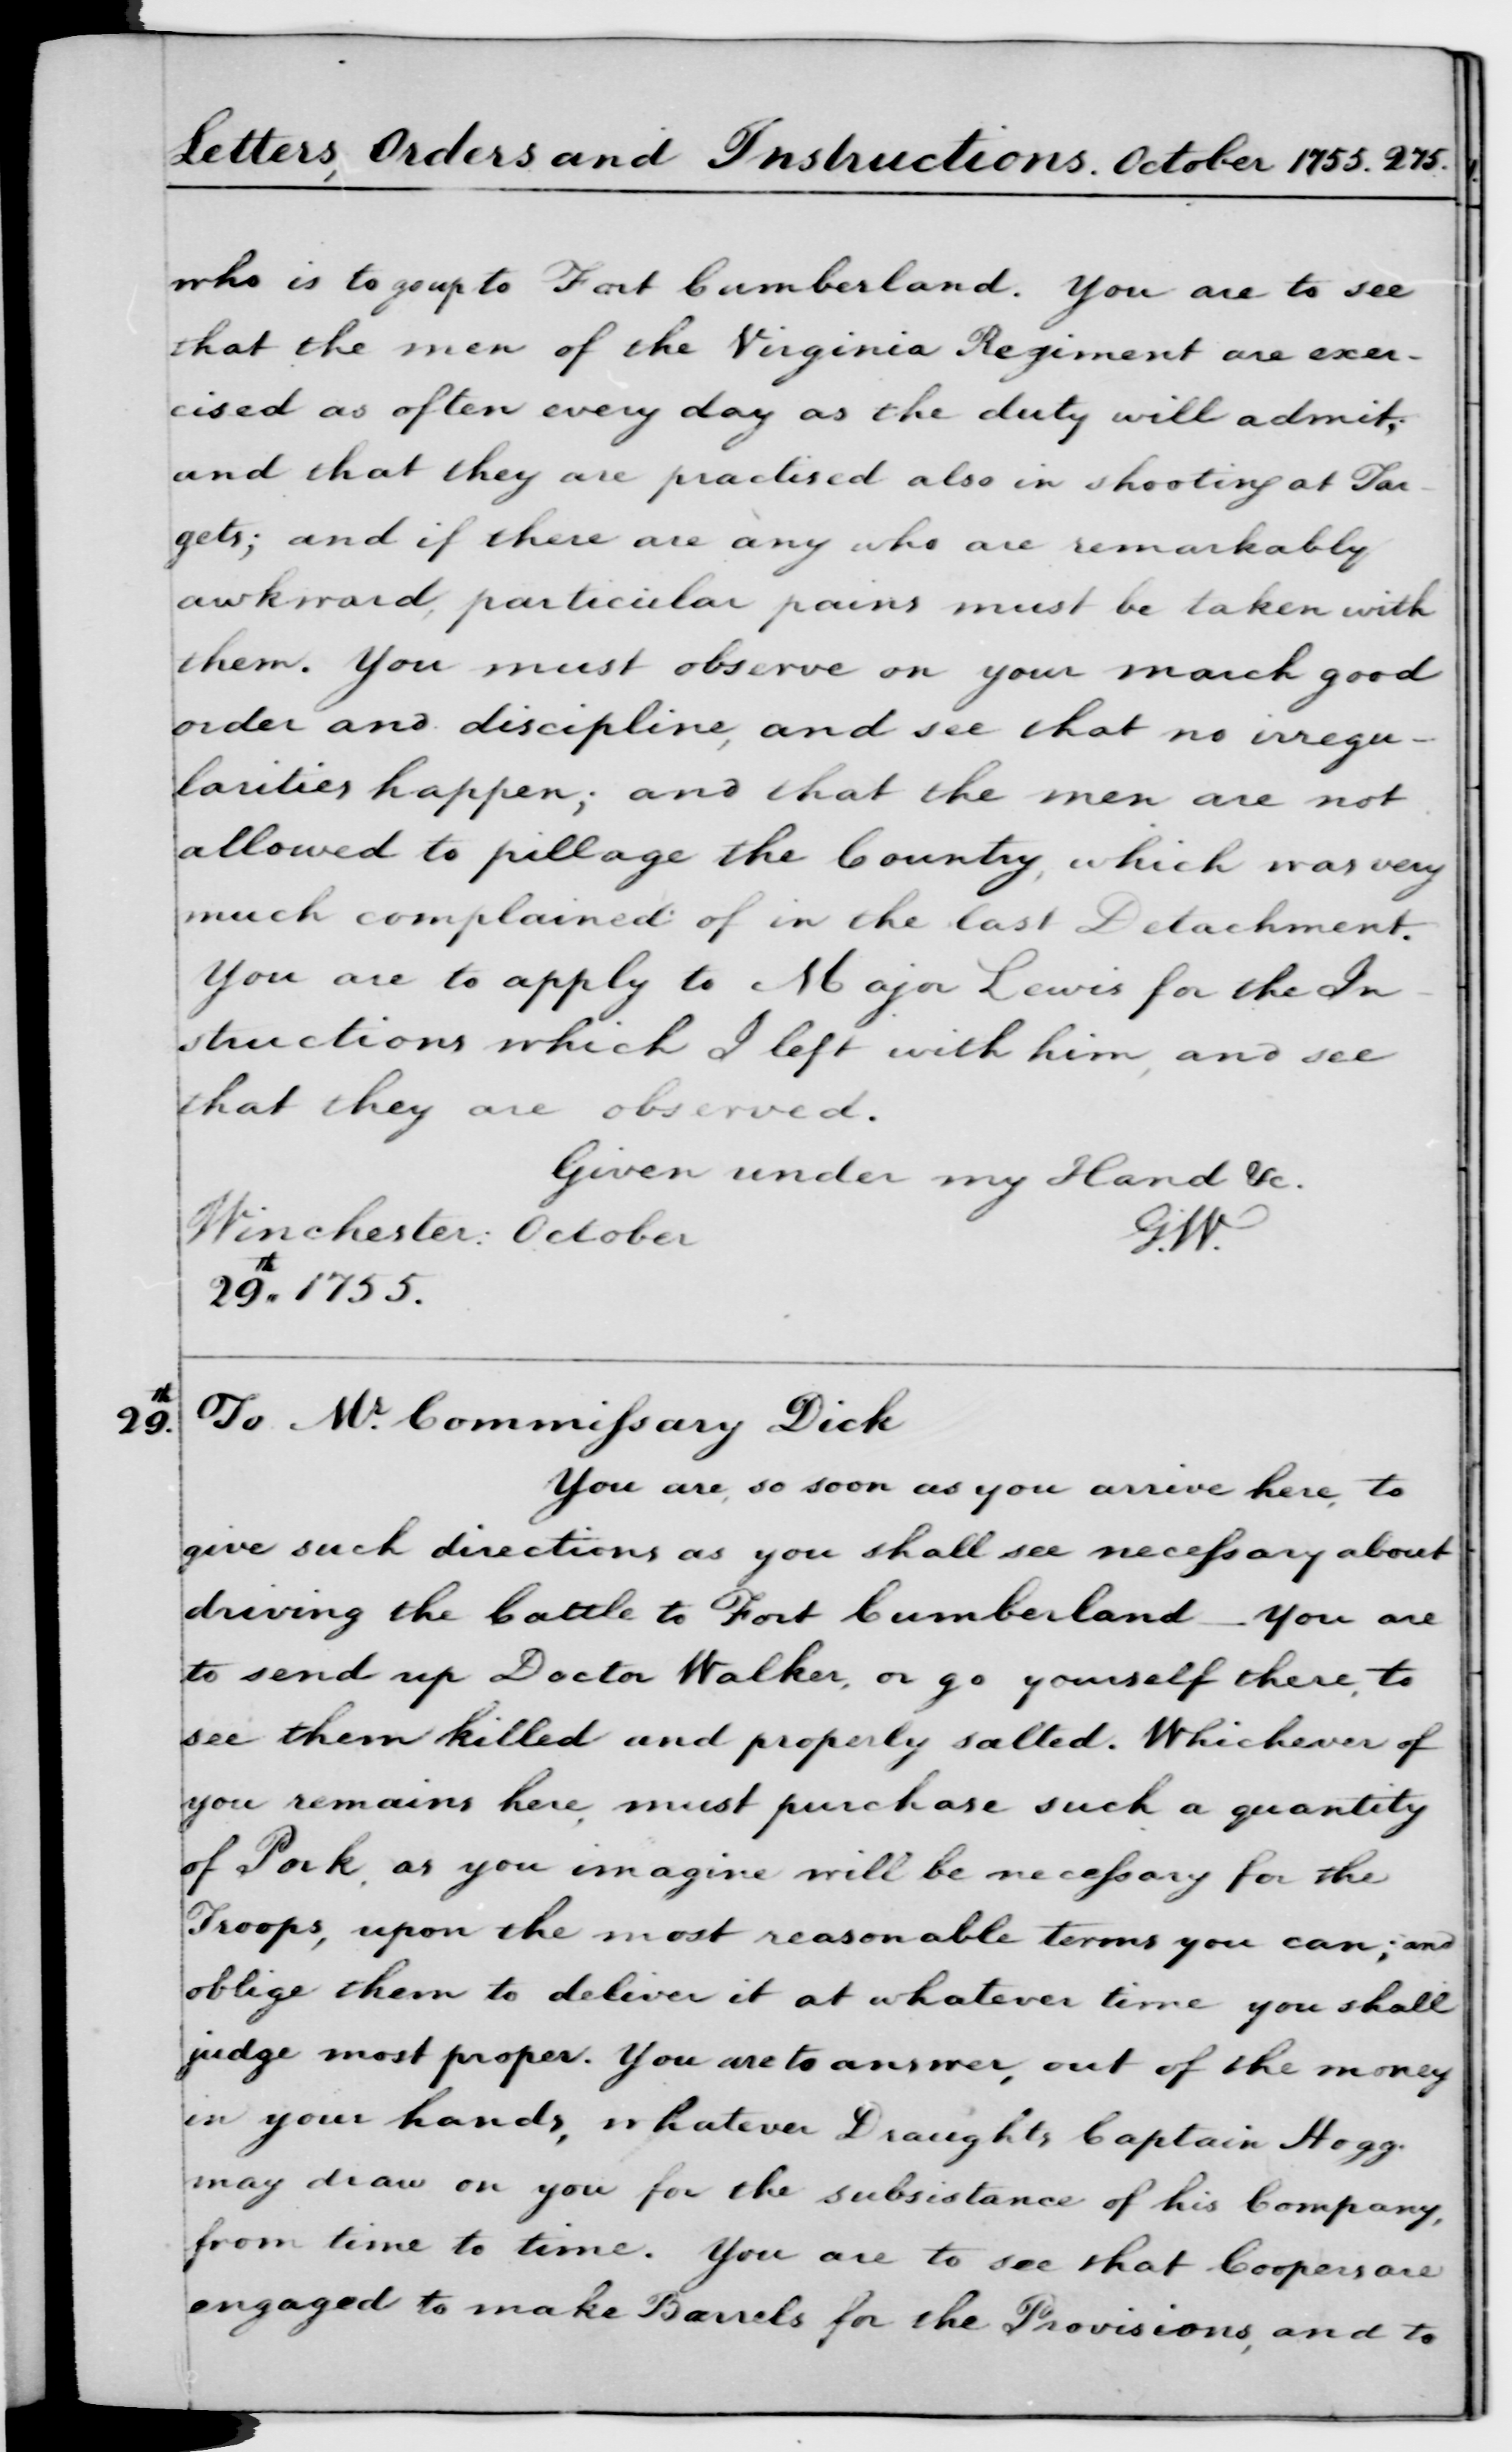 Letters, Orders and Instructions. October 1755. 275.
who is to go up to Fort Cumberland. You are to see
that the men of the Virginia Regiment are exer-
cised as often every day as the duty will admit;
and that they are practised also in shooting at Tar-
gets; and if there are any who are remarkably
awkward, particular pains must be taken with
them. You must observe on your march good
order and discipline, and see that no irregu-
larities happen; and that the men are not
allowed to pillage the Country, which was very
much complained of in the last Detachment.
You are to apply to Major Lewis for the In-
structions which I left with him, and see
that they are observed.
Given under my Hand &c.
Winchester: October G.W.
29th. 1755.
29th. To Mr. Commiſsary Dick
You are, so soon as you arrive here, to
give such directions as you shall see neceſsary about
driving the Cattle to Fort Cumberland — You are
to send up Doctor Walker, or go yourself there, to
see them killed and properly salted. Whichever of
you remains here, must purchase such a quantity
of Pork, as you imagine will be neceſsary for the
Troops, upon the most reasonable terms you can; and
oblige them to deliver it at whatever time you shall
judge most proper. You are to answer, out of the money
in your hands, whatever Draughts Captain Hogg
may draw on you for the subsistance of his Company,
from time to time. You are to see that Coopers are
engaged to make Barrels for the Provisions, and to